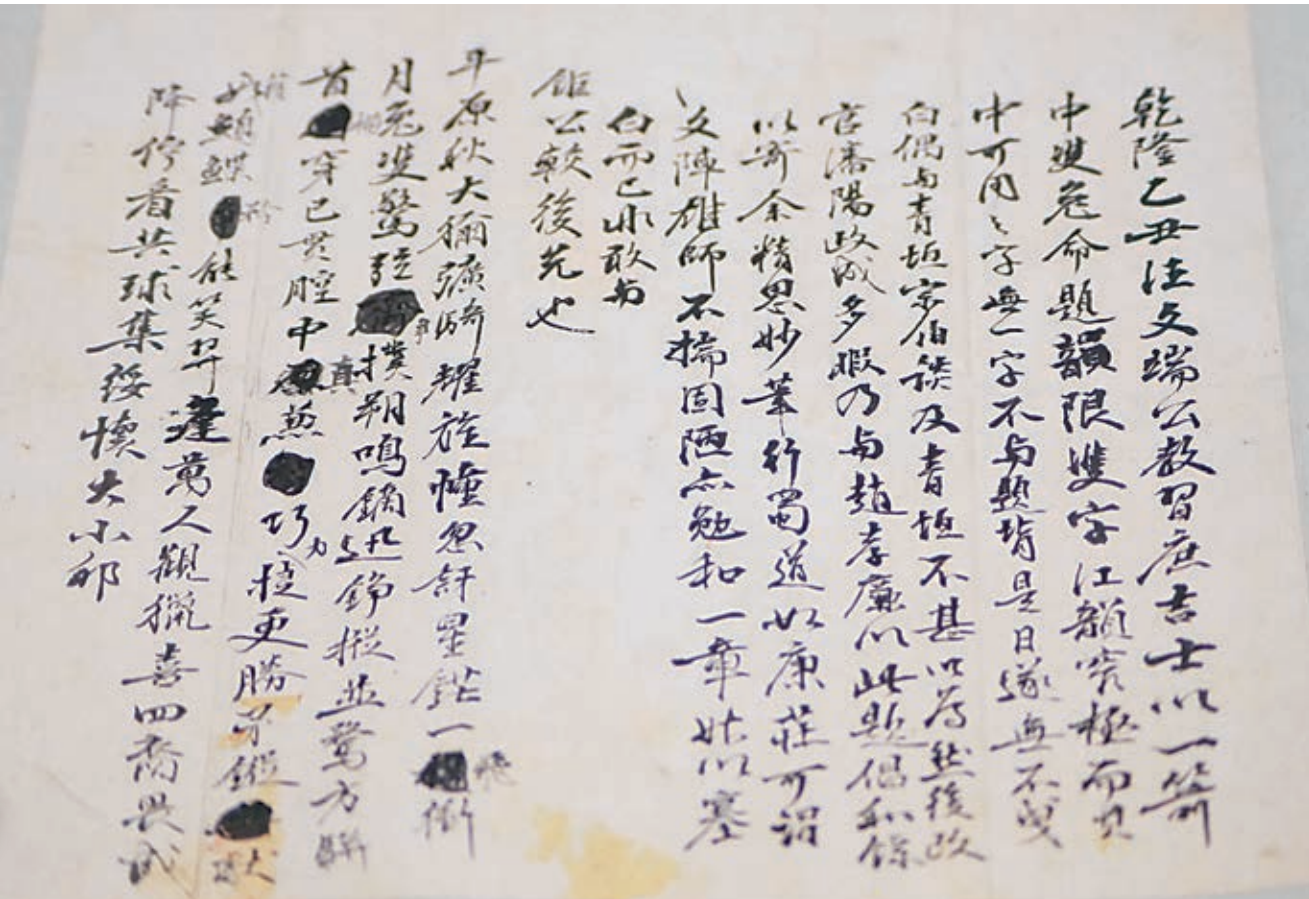 乾隆乙丑汪文端公教習庶吉士以一箭
中雙兔命題韻限雙字江韻窄極而其
中可用之字無一字不與題背是日遂無不曳
白偶與青垣宗伯談及青垣不甚以為然後改
官瀋陽政成多暇乃與趙孝廉以此題倡和錄
以寄余精思妙筆行蜀道如康莊可謂
文陣雄師不揣固陋亦勉和一章姑以塞
白而已非敢與
鉅公較後先也
平原秋大獮彍騎耀旌幢忽訝星鋩一飛銜
月兔雙驚弦撲朔鳴鏑迅錚摐並騖方
首穿已貫腔中真巧力控更勝獸
鰈能笑羿逢萬人觀獵喜四裔畏威
降佇看共球集綏懷大小邦